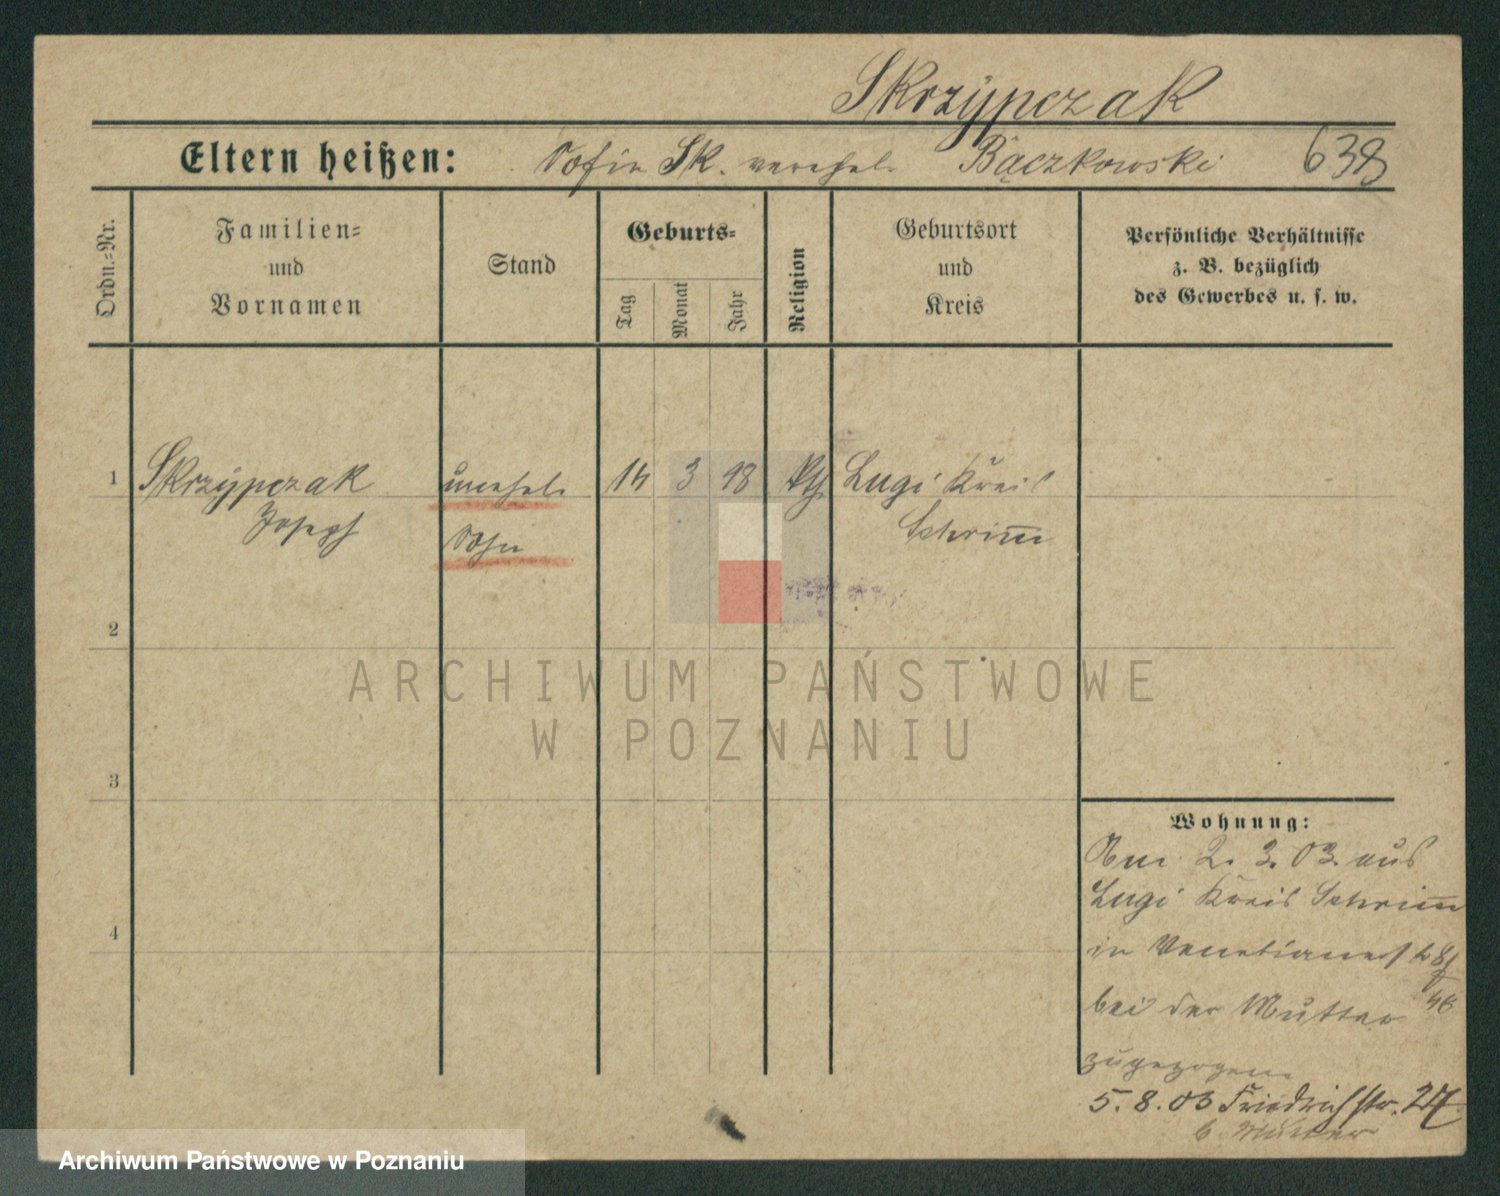 Skrzÿpczak
Eltern heißen: Sofia Sk. verehel. Bączkowski 638
Ordn.-Nr.
Familien-
und
Vornamen
Stand
Geburts-
Tag
Monat
Jahr
Religion
Geburtsort
und
Kreis
Persönliche Verhältnisse
z. B. bezüglich
des Gewerbes u. s. w.
1 Skrzÿpczak unehel. 14 3 98 kth Lugi Kreis
Joseph Sohn Schrim̅
2
3
4
Wohnung:
Am 2. 3. 03. aus
Lugi Kreis Schrim̅
in Venetianerst
bei der Mutter
zugezogen
5. 8. 03 Friedrichstr. 27
b. Mutter
ARCHIWUM PAŃSTWOWE
W POZNANIU
Archiwum Państwowe w Poznaniu